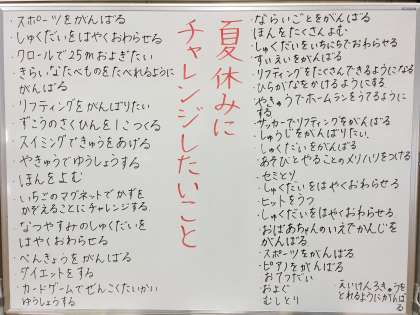 夏休みに
チャレンジしたいこと
・スポーツをがんばる
・しゅくだいをはやくおわらせる
・クロールで25mおよぎたい
・きらいなたべものをたべれるように
がんばる
・リフティングをがんばりたい
・ずこうのさくひんを1こつくる
・スイミングできゅうをあげる
・やきゅうでゆうしょうする
・ほんをよむ
・いちごのマグネットでかずを
かぞえることにチャレンジする
・なつやすみのしゅくだいを
はやくおわらせる
・べんきょうをがんばる
・ダイエットをする
・カードゲームでぜんこくたいかい
ゆうしょうする
・ならいごとをがんばる
・ほんをたくさんよむ
・しゅくだいをいちにちでおわらせる
・すいえいをがんばる
・リフティングをたくさんできるようになる
・ひらがなをかけるようにする
・やきゅうでホームランをうてるように
する
・サッカーでリフティングをがんばる
・しゅうじをがんばりたい
・しゅくだいをがんばる
・あそびとやることのメリハリをつける
・セミとり
・しゅくだいをはやくおわらせる
・ヒットをうつ
・しゅくだいをはやくおわらせる
・おばあちゃんのいえでかんじを
がんばる
・スポーツをがんばる
・ピアノをがんばる
・おてつだい
・およぐ
・むしとり
・えいけん3きゅうを
とれるようにがんばる